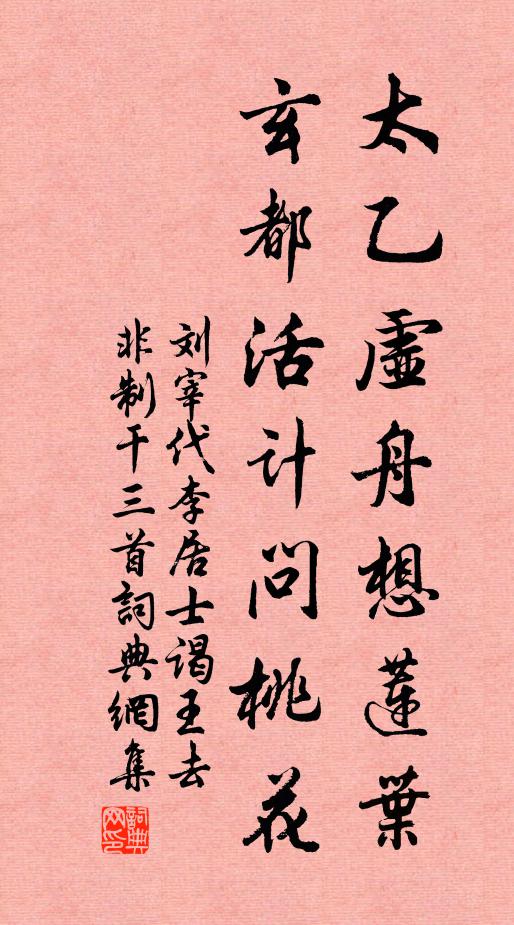 太乙虛舟想蓮葉
玄都活计问桃花
刘宰代李居士谒王去
非制干三首詞典網集
詞典
网印